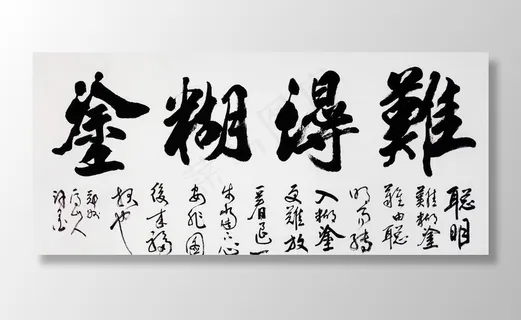 難得糊塗
聰明
難糊塗
難由聰
明而轉
入糊塗
更難放
一著退一
步當下心
安非圖
後来福
报也